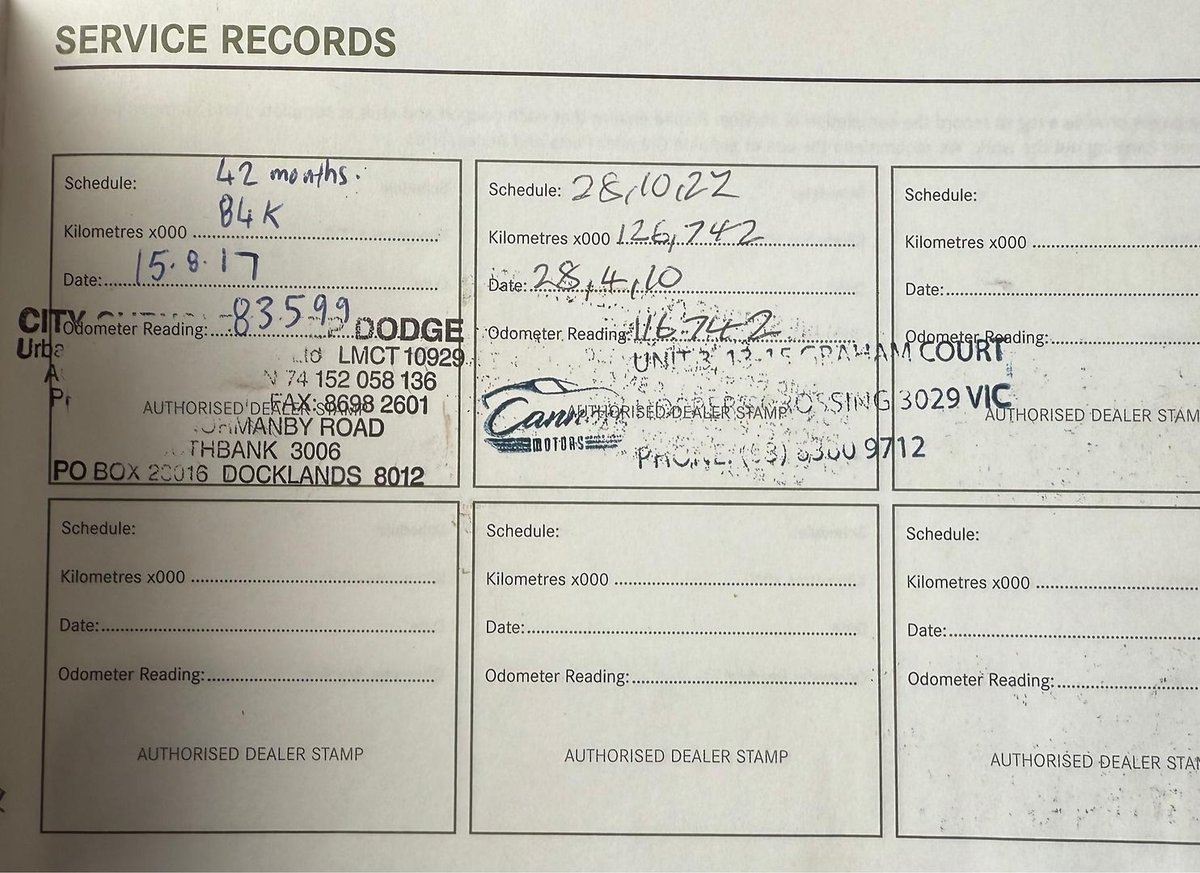 SERVICE RECORDS
Schedule: 42 months.
Kilometres x000 84K
Date: 15.8.17
Odometer Reading: 83599
CITY DODGE
LMCT 10929
74 152 058 136
FAX: 8698 2601
AUTHORISED DEALER STAMP
MANBY ROAD
THBANK 3006
PO BOX DOCKLANDS 8012
Schedule: 28,10,22
Kilometres x000 126,742
Date: 28,4,10
Odometer Reading: 116742
UNIT 3, 13-15 GRAHAM COURT
CROSSING 3029 VIC
MOTORS
AUTHORISED DEALER STAMP
PHONE: 9712
Schedule:
Kilometres x000
Date:
Odometer Reading:
AUTHORISED DEALER STAM
Schedule:
Kilometres x000
Date:
Odometer Reading:
AUTHORISED DEALER STAMP
Schedule:
Kilometres x000
Date:
Odometer Reading:
AUTHORISED DEALER STAMP
Schedule:
Kilometres x000
Date:
Odometer Reading:
AUTHORISED DEALER STAM